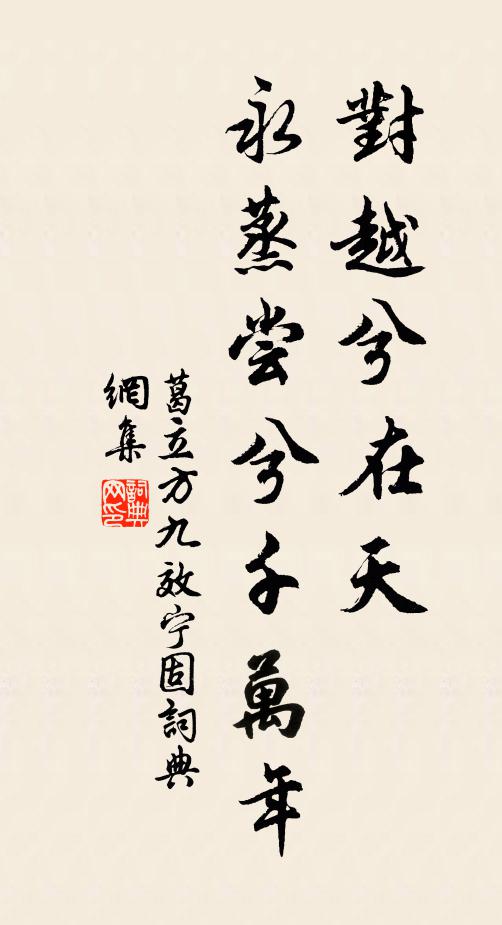 對越兮在天
永蒸尝兮千萬年
葛立方九效宁固詞典
網集
詞典
网印